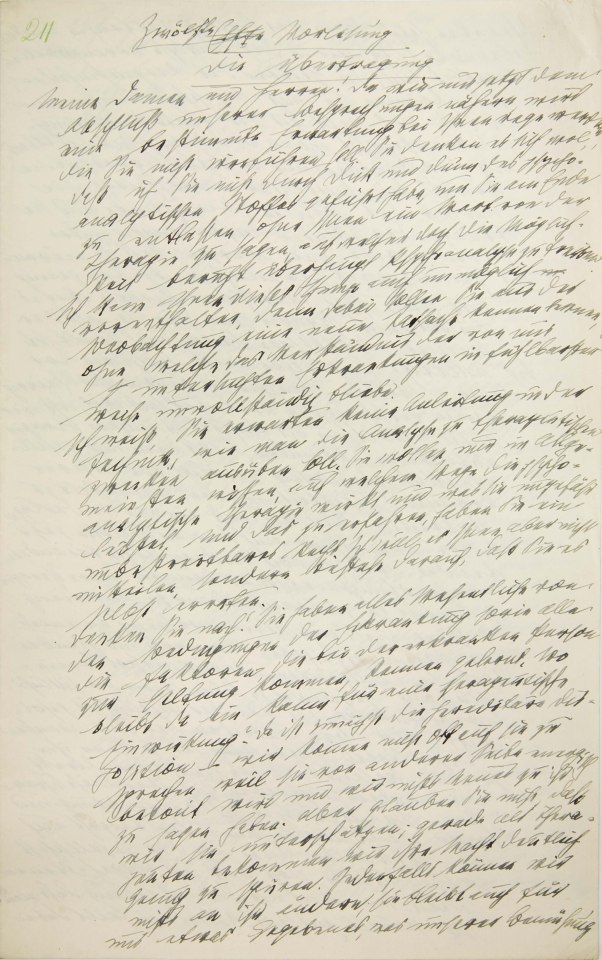 24
Zwölfte Elfte Vorlesung
Die Übertragung
Meine Damen und Herren! Da wir uns jetzt dem
Abschluß unserer Besprechungen nähern, wird
eine bestimmte Erwartung bei Ihnen rege werden
die Sie nicht irreführen soll. Sie denken es sich wol,
daß ich Sie nicht durch Dick und Dünn des psycho-
analytischen Stoffes geführt habe um Sie am Ende
zu entlassen, ohne Ihnen ein Wort von der
Therapie zu sagen, auf welcher doch die Möglich-
keit beruht überhaupt Psychoanalyse zu treiben.
Ich kann Ihnen dieses Thema auch unmöglich
vorenthalten, denn dabei sollen Sie aus der
Beobachtung eine neue Tatsache kennen lernen,
ohne welche das Verständnis der von uns
untersuchten Erkrankungen in fühlbarster
Weise unvollständig bliebe.
Ich weiß, Sie erwarten keine Anleitung in der
Technik, wie man die Analyse zu therapeutischen
Zwecken ausüben soll. Sie wollen nur im allge-
meinsten wissen, auf welchem Wege die psycho-
analytische Therapie wirkt und was sie ungefähr
leistet. Und das zu erfahren, haben Sie ein
unbestreitbares Recht. Ich will es Ihnen aber nicht
mitteilen, sondern bestehe darauf, daß Sie es
selbst erraten.
Denken Sie nach! Sie haben alles Wesentliche von
den Bedingungen der Erkrankung sowie alle
die Faktoren die bei der erkrankten Person
zur Geltung kommen, kennen gelernt. Wo
bleibt da ein Raum für eine therapeutische
Einwirkung? Da ist zunächst die hereditäre Dis-
position – wir kommen nicht oft auf sie zu
sprechen weil sie von anderer Seite energisch
betont wird und wir nichts Neues zu ihr
zu sagen haben. Aber glauben Sie nicht, daß
wir sie unterschätzen; gerade als Thera-
peuten bekommen wir ihre Macht deutlich
genug zu spüren. Jedenfalls können wir
nichts an ihr ändern, sie bleibt auch für
uns etwas Gegebenes, was unserer Bemühung